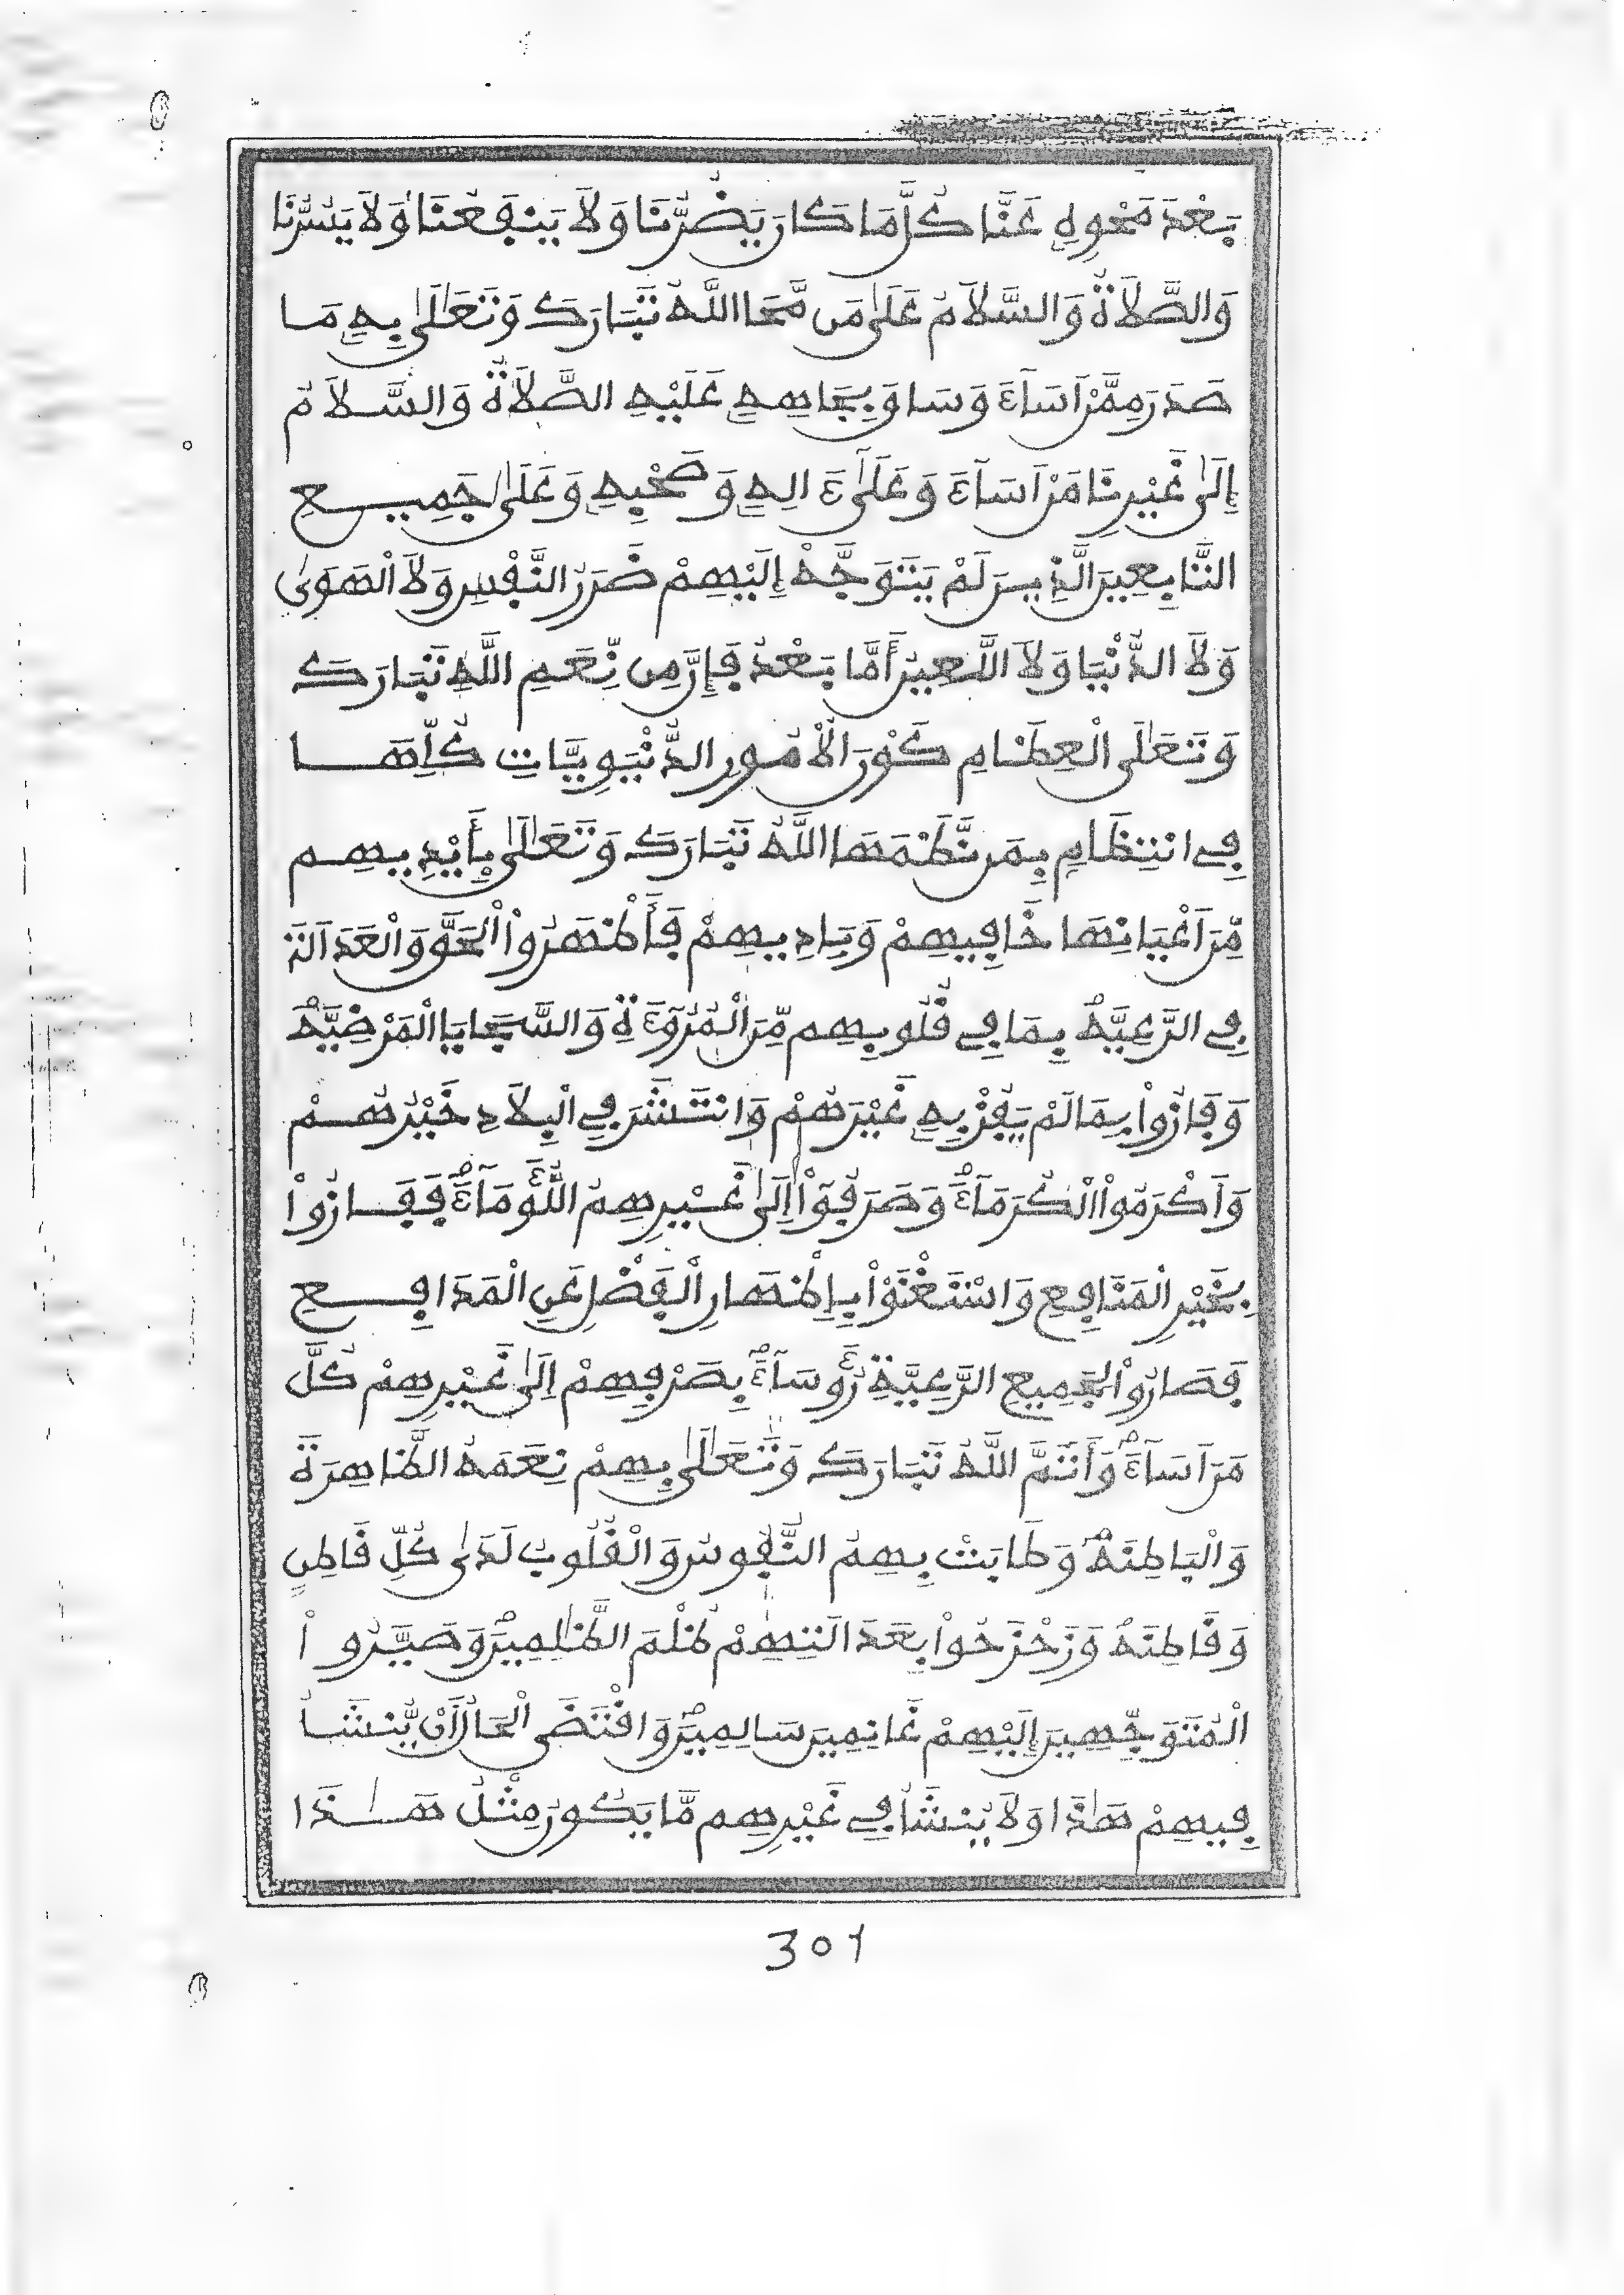 بَعْدَ مَحْوِهِ عَنَّا كُلَّ مَا كَانَ يَضُرُّنَا وَلَا يَنفَعُنَا وَلَا يَسُرُّنَا
وَالصَّلَاةُ وَالسَّلَامُ عَلَىٰ مَن مَّحَا اللَّهُ تَبَارَكَ وَتَعَٰلَىٰ بِهِ مَا
صَدَرَ مِمَّنْ اَسَآءَ وَسَاوَ بِجَاهِهِ عَلَيْهِ الصَّلَاةُ وَالسَّلَامُ
إِلَىٰ غَيْرِنَا مَنْ اَسَآءَ وَعَلَىٰٓ ءَالِهِ وَصَحْبِهِ وَعَلَىٰ جَمِيعِ
التَّابِعِينَ الَّذِينَ لَمْ يَتَوَجَّهْ إِلَيْهِمْ ضَرَرُ النَّفْسِ وَلَا الْهَوَىٰ
وَلَا الدُّنْيَا وَلَا اللَّعِينُ أَمَّا بَعْدُ فَإِنَّ مِن نِّعَمِ اللَّهِ تَبَارَكَ
وَتَعَٰلَى الْعِظَامِ كَوْنَ الْأُمُورِ الدُّنْيَوِيَّاتِ كُلِّهَا
فِي انْتِظَامِ بِمَن نَّظَمَهَا اللَّهُ تَبَارَكَ وَتَعَٰلَىٰ بِأَيْدِيهِم
مِّنَ اَعْيَانِهَا خَافِيهِمْ وَبَادِيهِمْ فَأَظْهَرُواْ الْحَقَّ وَالْعَدَالَةَ
فِي الرَّعِيَّهْ بِمَا فِي قُلُوبِهِم مِّنَ الْمُرُوٓءَةِ وَالسَّجَايَا الْمَرْضِيَّهْ
وَفَازُواْ بِمَا لَمْ يَفُزْ بِهِ غَيْرُهُمْ وَانتَشَرَ فِي الْبِلَادِ خَيْرُهُمْ
وَأَكْرَمُواْ الْكُرَمَآءَ وَصَرَفُوٓاْ إِلَىٰ غَيْرِهِمُ اللُّؤَمَآءَ فَفَازُواْ
بِخَيْرِ الْمَنَافِعِ وَاسْتَغْنَوْاْ بِإِظْهَارِ الْفَضْلِ عَنِ الْمَدَافِعِ
فَصَارُواْ لِجَمِيعِ الرَّعِيَّةِ رُؤَسَآءَ بِصَرْفِهِمْ إِلَىٰ غَيْرِهِمْ كُلَّ
مَنَ اَسَآءَ وَأَتَمَّ اللَّهُ تَبَارَكَ وَتَعَٰلَىٰ بِهِمْ نِعَمَهُ الظَّاهِرَةَ
وَالْبَاطِنَهْ وَطَابَتْ بِهِمُ النُّفُوسُ وَالْقُلُوبُ لَدَىٰ كُلِّ قَاطِنٍ
وَقَاطِنَهْ وَزَحْزَحُواْ بِعَدَالَتِهِمْ ظُلْمَ الظَّٰلِمِينَ وَصَيَّرُواْ
الْمُتَوَجِّهِينَ إِلَيْهِمْ غَانِمِينَ سَالِمِينَ وَاقْتَضَى الْحَالُ أَنْ يَّنشَأَ
فِيهِمْ هَٰذَا وَلَا يُنشَأُ فِي غَيْرِهِم مَّا يَكُونُ مِثْلُ هَٰذَا
301